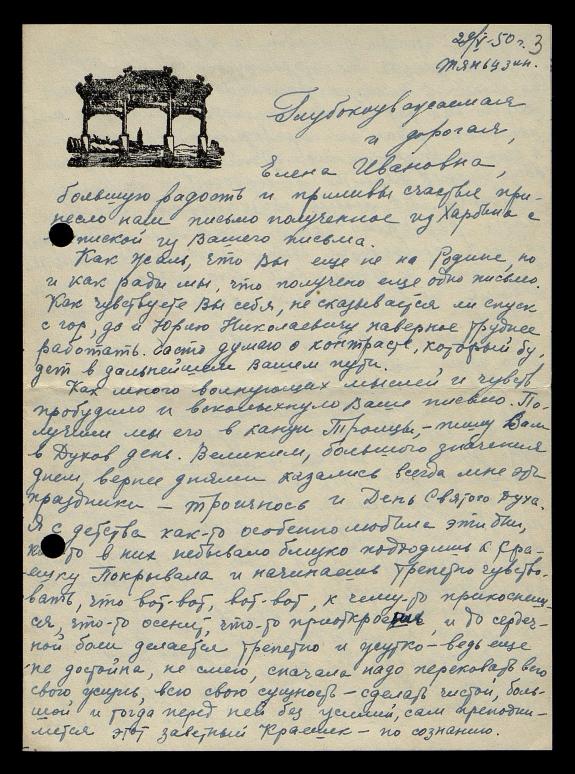 29/V-50 г. 3
Тяньцзин.
Глубокоуважаемая
и дорогая,
Елена Ивановна,
большую радость и приливы счастья при-
несло нам письмо полученное из Харбина с
пиской из Вашего письма.
Как жаль, что Вы еще не на Родине, но
и как рады мы, что получено еще одно письмо.
Как чувствуете Вы себя, не сказывается ли спуск
с гор, да и Юрию Николаевичу наверное труднее
работать. Часто думаю о контрасте, который бу-
дет в дальнейшем Вашем пути.
Как много волнующих мыслей и чувств
пробудило и всколыхнуло Ваше письмо. По-
лучили мы его в канун Троицы, - пишу Вам
в Духов день. Великим, большого значения
днем, вернее днями казались всегда мне эти
праздники - Троичность и День Святого Духа.
Я с детства как-то особенно любила эти дни,
то в них небывало близко подходишь к Кра-
ешку Покрывала и начинаешь трепетно чувство-
вать, что вот-вот, вот-вот, к чему-то прикоснешь-
ся, что-то осенит, что-то приоткроет, и до сердеч-
ной боли делается трепетно и жутко - ведь еще
не достойна, не смею, сначала надо перековать всю
свою жизнь, всю свою сущность - сделать чистой, боль-
шой и тогда перед ней без усилий, сам приподни-
мется этот заветный Краешек - по сознанию.